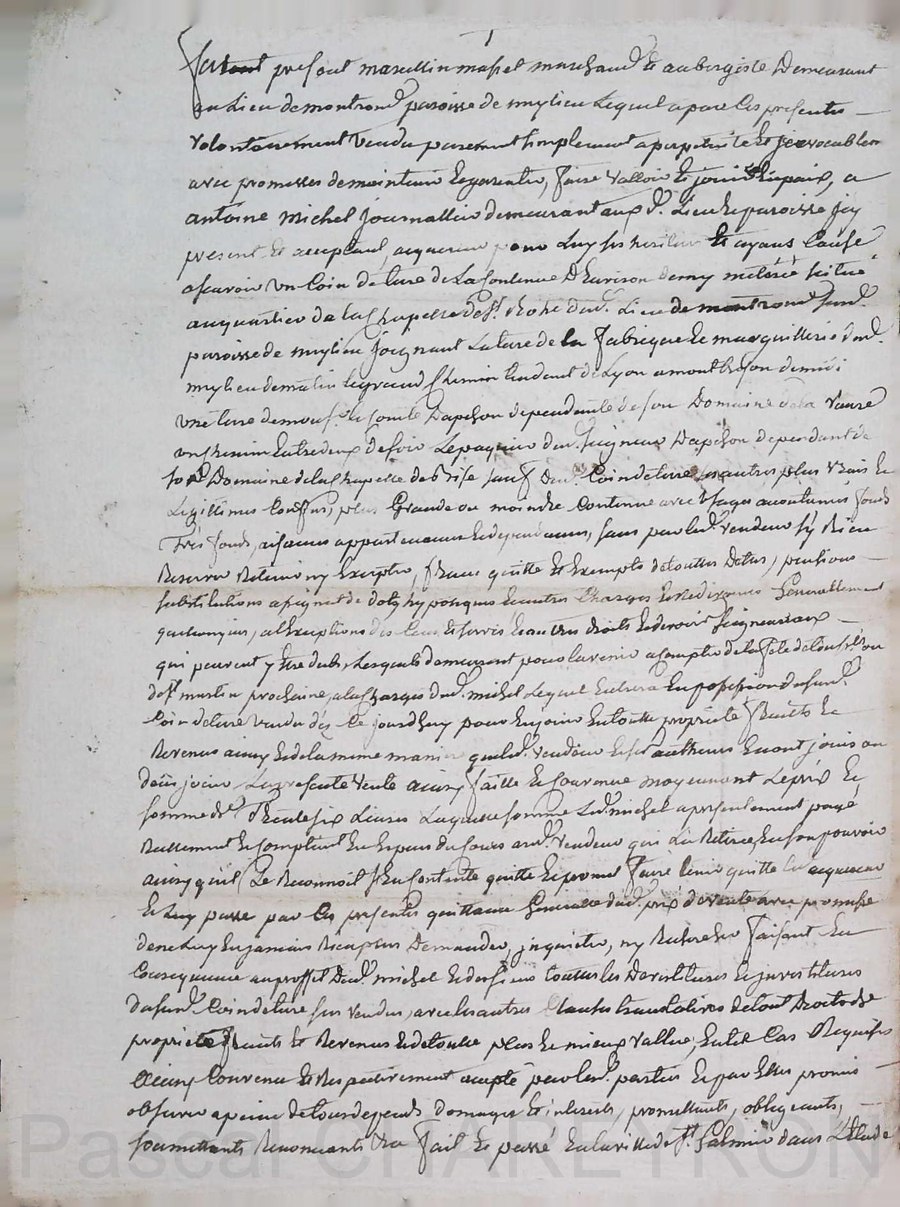 1
present marcellin masset marchand et aubergiste Demeurant
au Lieu de montrond paroisse de mylieu Lequel a par Ces presentes
volontairement Vendu purement simplement a perpetuité et jrrevocablem
avec promesses de maintenir Et garentir, faire valloir Et jouir En paix, a
antoine michel journallier demeurant aud. Lieu Et paroisse jcy
present Et aceptant, acquereur pour Luy ses heritiers Et ayans Cause
ascavoir un Coin de terre de La Contenue D'Environ demy meterée scitué
au quartier de La Chapelle de St. Roch dud. Lieu de montrond susd.
paroisse de mylieu joignant La terre de la fabrique Et marguillerie dud.
mylieu de matin Le grand Chemin tendant de Lyon a montbrison de midi
une terre de mons. Le Comte Dapchon dependante de son Domaine de La
un Chemin Entredeux de soir Le paquier dud. seigneur Dapchon dependant de
son Domaine de La Chapelle de bize sauf dud. Coin de terre ses autres plus vrais Et
Legittimes Confins, plus Grande ou moindre Contenue avec Usages accoutumés fonds
Tres fonds, aisances appartenances Et dependances, sans par led. vendeur s'y Rien
Reserver Retenir ny Excepter, franc quitte Et Exempt de touttes Dettes, pentions
substitutions de dot, hypoteques Et autres Charges Et Redevances Generallement
quelconques, a l'Exeption des Cens Et servis Et autres droits Et devoirs seigneuriaux
qui peuvent y Etre dubs, Lesquels demeurent pour l'avenir a Compter de La fete de toussts. ou
de St. martin prochaine, a La Charge dud. michel Lequel Entrera En possession dususd.
Coin de terre vendu dès Ce jourd'huy pour En jouir En toutte proprieté fruits Et
Revenus ainsy Et de la meme maniere que led. vendeur Et ses autheurs En ont jouis ou
deus jouir La presente Vente ainsy faitte Et Convenue moyennant Le prix Et
somme de Trente six Livres Laquelle somme Led. michel a presentement payé
Reellement Et Comptant En Especes du Cours aud. Vendeur qui L'a Retirée En son pouvoir
ainsy qu'il Le Reconnoit s'En Contente quitte Et promet faire tenir quitte led acquereur
Et Luy passe par Ces presentes quittance Generalle dud. prix de vente avec promesse
de ne Luy En jamais Rien plus Demander, jnquieter, ny Rechercher faisant En
Consequence au proffit Dud. michel Et des siens touttes les Devettitures Et jnvestitures
dusud. Coin de terre sus vendu, avec les autres Clauses translatives de tout Droit de
proprieté fruits Et Revenus Et de toutte plus Et mieux vallue, En tel Cas Requises
ainsy Convenu Et Respectivement accepté par led. parties Et par Elles promis
observer a peine de tous depends domages Et interests, promettants, obligeants,
soumettants Renonceants &ca fait Et passé En la ville de St. Galmier dans L'Etude
Pascal CHAREYRON